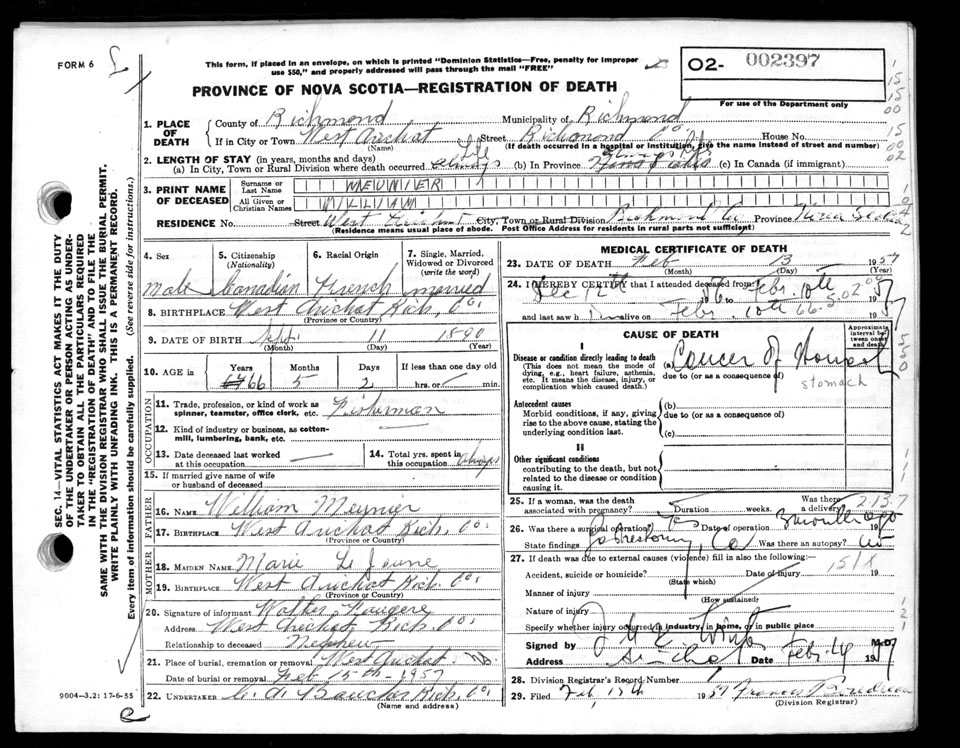 FORM 6
This form, if placed in an envelope, on which is printed "Dominion Statistics—Free, penalty for improper
use $50," and properly addressed will pass through the mail "FREE"
O2- 002397
For use of the Department only
PROVINCE OF NOVA SCOTIA—REGISTRATION OF DEATH
1. PLACE OF DEATH County of Richmond Municipality of Richmond
If in City or Town West Arichat Street Richmond Co. House No.
(Name) (If death occurred in a hospital or institution, give the name instead of street and number)
2. LENGTH OF STAY (in years, months and days)
(a) In City, Town or Rural Division where death occurred always (b) In Province (c) In Canada (if immigrant)
3. PRINT NAME OF DECEASED Surname or Last Name MEUNIER
All Given or Christian Names WILLIAM
RESIDENCE No. Street West Arichat City, Town or Rural Division Richmond Co Province Nova Scotia
(Residence means usual place of abode. Post Office Address for residents in rural parts not sufficient)
4. Sex 5. Citizenship (Nationality) 6. Racial Origin 7. Single, Married, Widowed or Divorced (write the word)
male Canadian French married
8. BIRTHPLACE West Arichat Rich. Co.
(Province or Country)
9. DATE OF BIRTH Sept. 11 1890
(Month) (Day) (Year)
10. AGE in Years Months Days If less than one day old
66 5 2 hrs. or min.
OCCUPATION
11. Trade, profession, or kind of work as
spinner, teamster, office clerk, etc. Fisherman
12. Kind of industry or business, as cotton-
mill, lumbering, bank, etc.
13. Date deceased last worked
at this occupation
14. Total yrs. spent in
this occupation always
15. If married give name of wife
or husband of deceased
FATHER
16. NAME William Meunier
17. BIRTHPLACE West Arichat Rich. Co.
(Province or Country)
MOTHER
18. MAIDEN NAME Marie Le Jeune
19. BIRTHPLACE West Arichat Rich. Co.
(Province or Country)
20. Signature of informant Walter Fougere
Address West Arichat Rich. Co.
Relationship to deceased Nephew
21. Place of burial, cremation or removal West Arichat
Feb 15th 1957
22. UNDERTAKER C. A. Boucher Rich. Co.
(Name and address)
9004—3,2: 17-6-55
MEDICAL CERTIFICATE OF DEATH
23. DATE OF DEATH Feb 13 1957
(Month) (Day) (Year)
24. I HEREBY CERTIFY that I attended deceased from
Dec 12th 56 to Febr. 10th 1957
and last saw him alive on Febr. 10th 1957
CAUSE OF DEATH
Approximate interval between onset and death
I
Disease or condition directly leading to death
(This does not mean the mode of
dying, e.g., heart failure, asthenia,
etc. It means the disease, injury, or
complication which caused death.)
(a) Cancer of
due to (or as a consequence of)
stomach
Antecedent causes
Morbid conditions, if any, giving
rise to the above cause, stating the
underlying condition last.
(b)
due to (or as a consequence of)
(c)
II
Other significant conditions
contributing to the death, but not
related to the disease or condition
causing it.
25. If a woman, was the death
associated with pregnancy? Duration weeks. Was there a delivery?
2-13-7
26. Was there a surgical operation? Yes Date of operation 19
State findings Was there an autopsy? No
27. If death was due to external causes (violence) fill in also the following:—
Accident, suicide or homicide? Date of injury 19
(State which)
151X
Manner of injury
(How sustained)
Nature of injury
Specify whether injury occurred in industry, in home, or in public place
Signed by M.D.
Address Arichat Date Feb. 14 1957
28. Division Registrar's Record Number
29. Filed Feb 15th 1957 Francis Boudreau
(Division Registrar)
SEC. 14—VITAL STATISTICS ACT MAKES IT THE DUTY
OF THE UNDERTAKER OR PERSON ACTING AS UNDER-
TAKER TO OBTAIN ALL THE PARTICULARS REQUIRED
IN THE "REGISTRATION OF DEATH" AND TO FILE THE
SAME WITH THE DIVISION REGISTRAR WHO SHALL ISSUE THE BURIAL PERMIT.
WRITE PLAINLY WITH UNFADING INK. THIS IS A PERMANENT RECORD.
Every item of information should be carefully supplied. (See reverse side for instructions.)